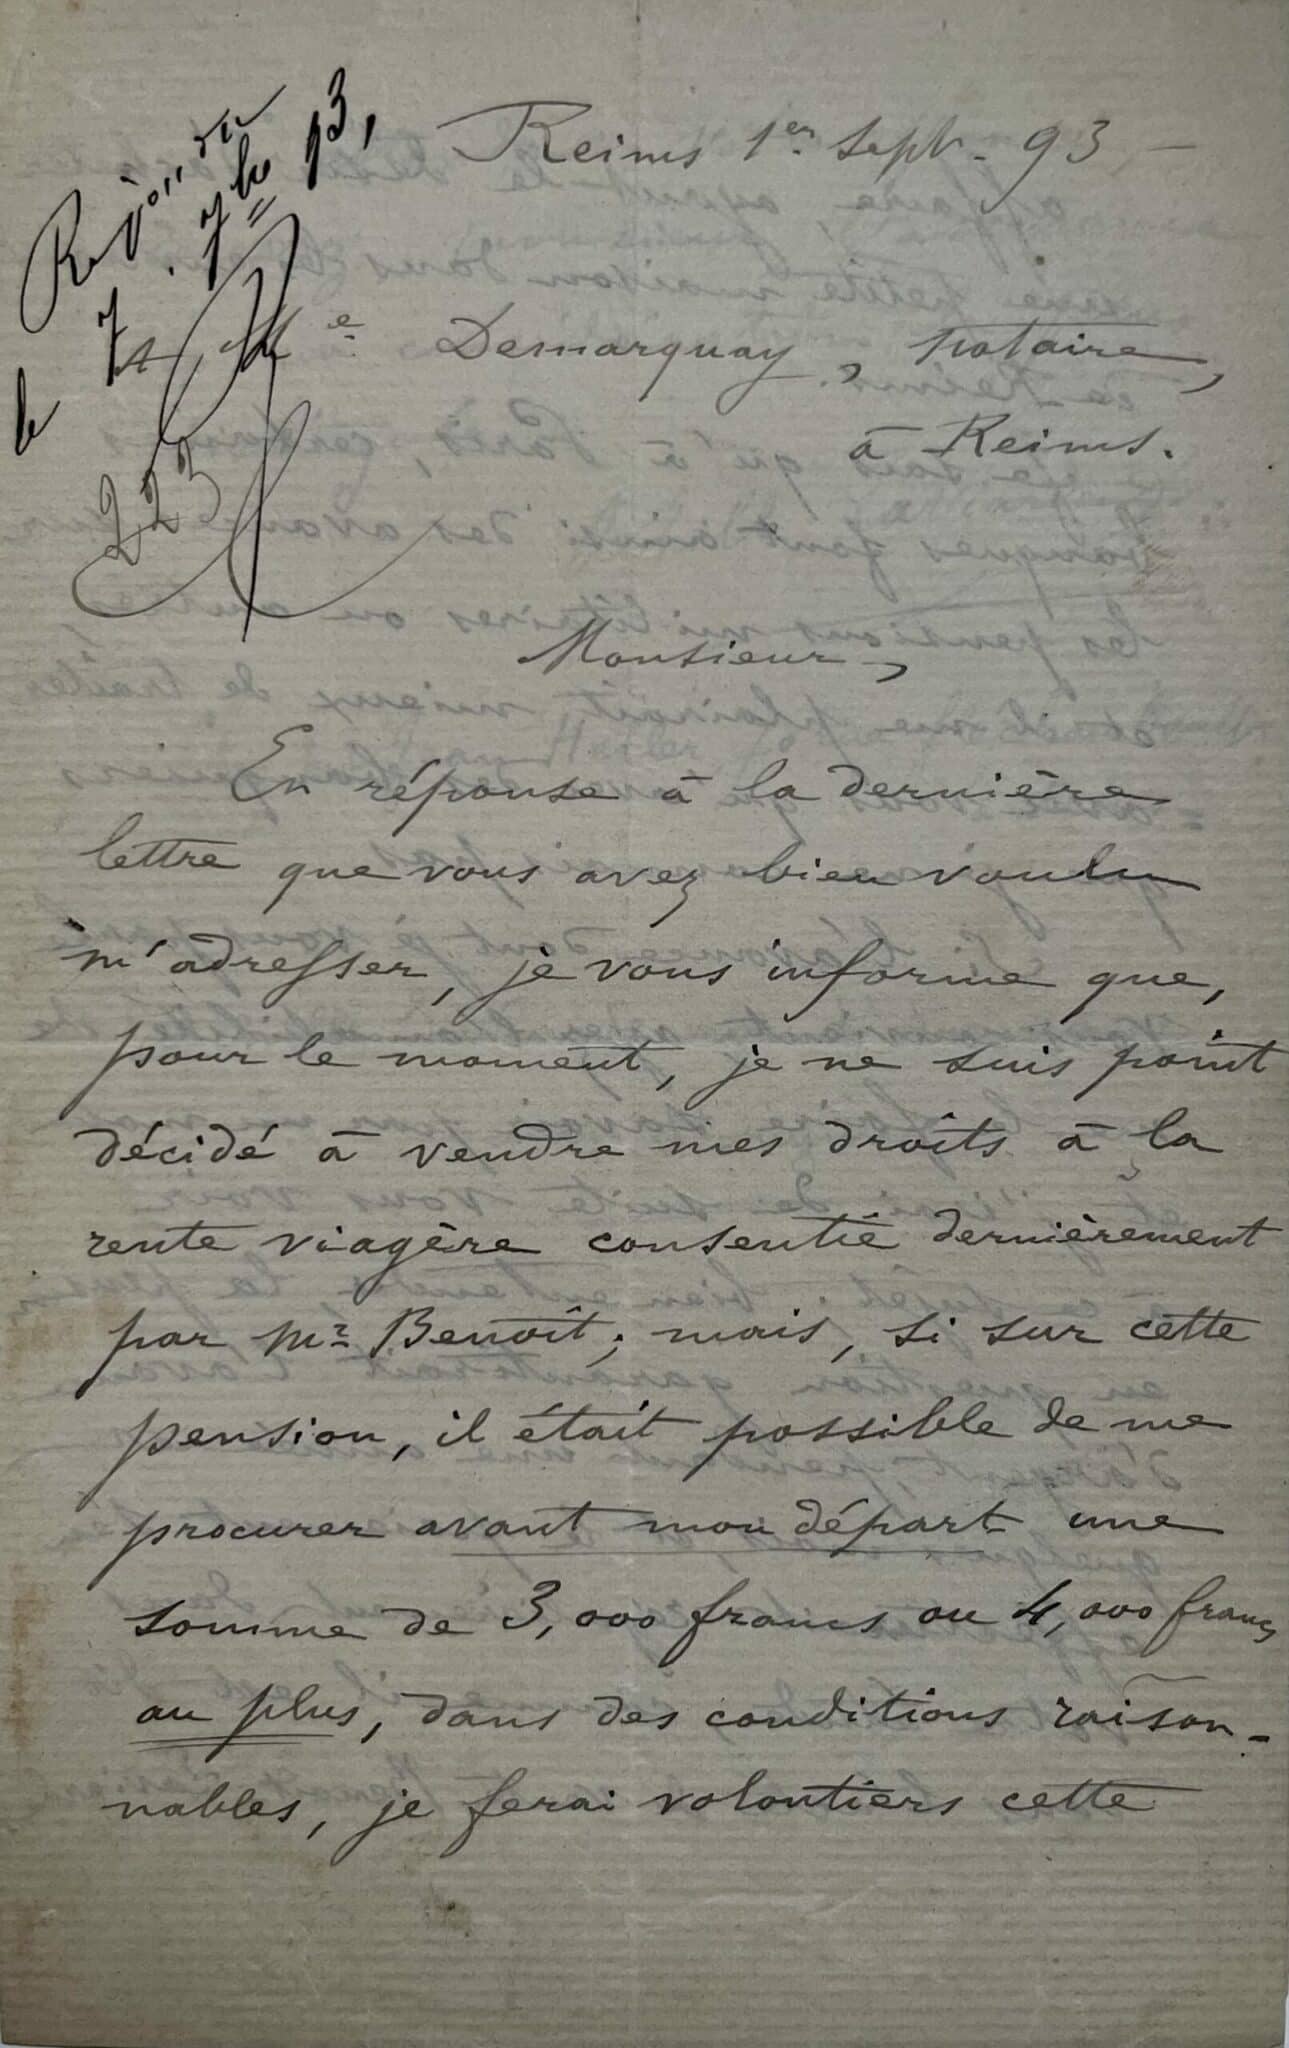 Rep. du
le 7. 7bre 93,
223
Reims 1er sept. 93 -
A Me Demarquay, notaire,
à Reims.
Monsieur,
En réponse à la dernière
lettre que vous avez bien voulu
m'adresser, je vous informe que,
pour le moment, je ne suis point
décidé à vendre mes droits à la
rente viagère consentie dernièrement
par Mr Benoît; mais, si sur cette
pension, il était possible de me
procurer avant mon départ une
somme de 3,000 francs ou 4,000 francs
au plus, dans des conditions raison-
nables, je ferai volontiers cette